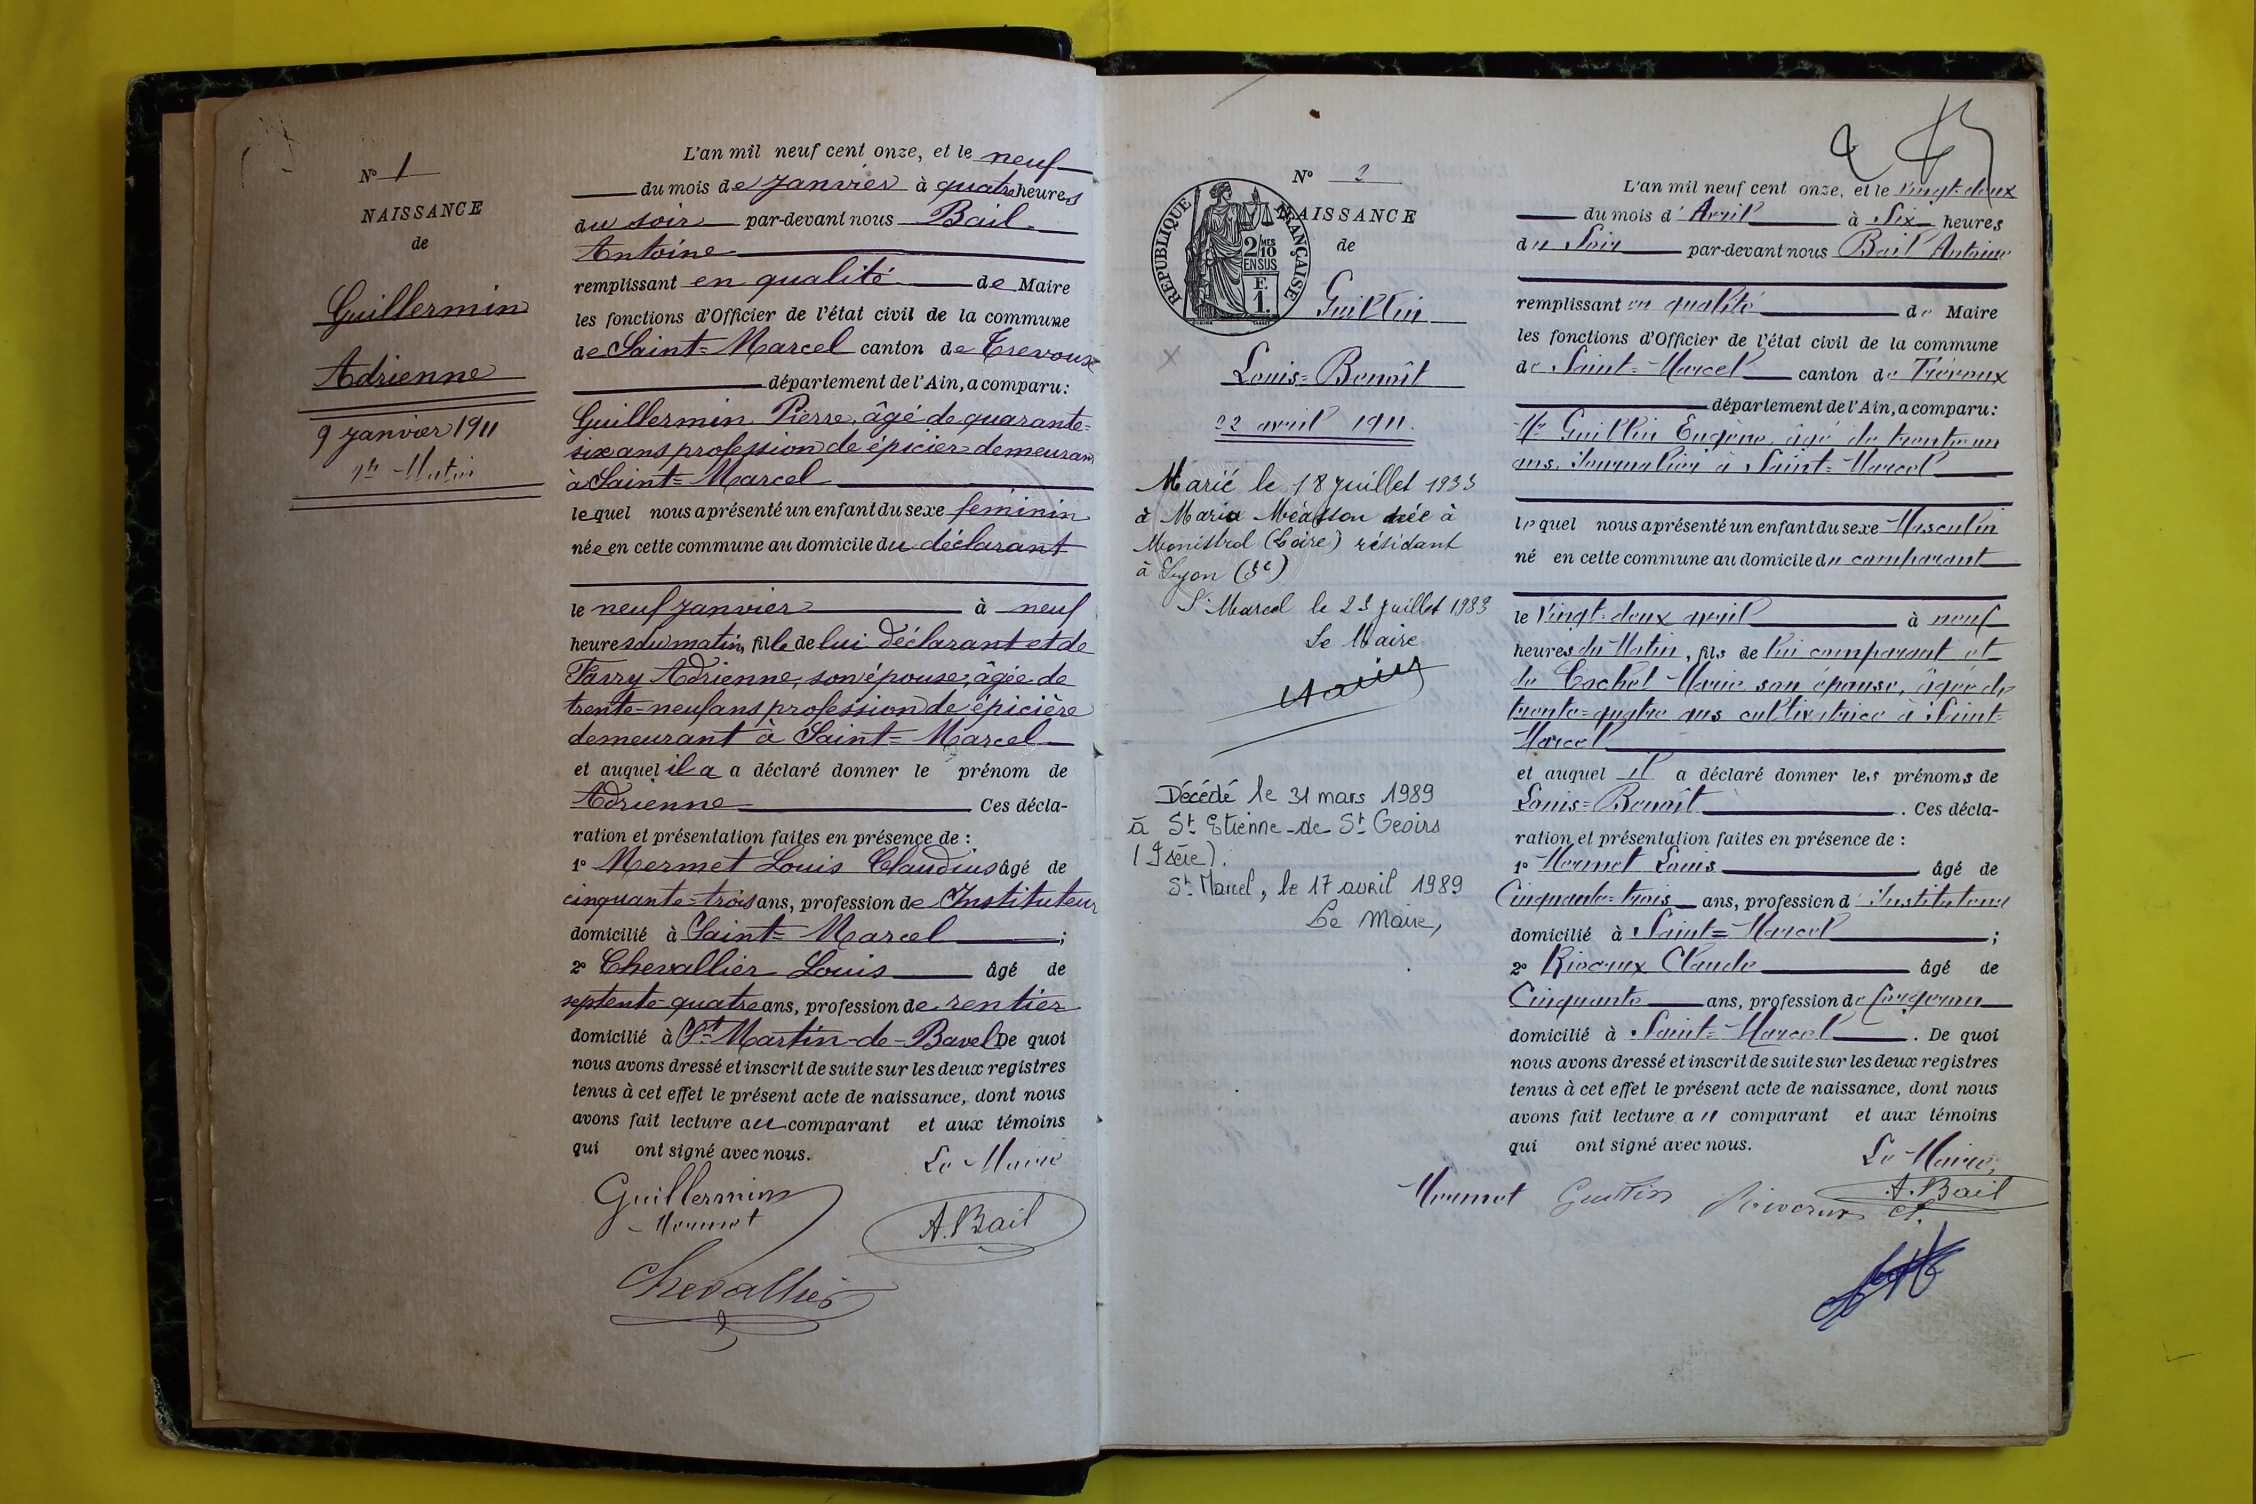 N° 1
NAISSANCE
de
Guillermin
Adrienne
9 janvier 1911
9h Matin
L'an mil neuf cent onze, et le neuf
du mois de janvier à quatre heures
du soir par-devant nous Bail
Antoine
remplissant en qualité de Maire
les fonctions d'Officier de l'état civil de la commune
de Saint=Marcel canton de Trevoux
département de l'Ain, a comparu:
Guillermin Pierre, âgé de quarante=
six ans profession de épicier demeurant
à Saint=Marcel
lequel nous a présenté un enfant du sexe féminin
née en cette commune au domicile du déclarant
le neuf janvier à neuf
heures du matin, fille de lui déclarant et de
Favry Adrienne, son épouse, âgée de
trente=neuf ans profession de épicière
demeurant à Saint=Marcel
et auquel il a a déclaré donner le prénom de
Adrienne Ces décla-
ration et présentation faites en présence de :
1° Mermet Louis Claudius âgé de
cinquante=trois ans, profession de Instituteur
domicilié à Saint=Marcel ;
2° Chevallier Louis âgé de
septente-quatre ans, profession de rentier
domicilié à St Martin-de-Bavel De quoi
nous avons dressé et inscrit de suite sur les deux registres
tenus à cet effet le présent acte de naissance, dont nous
avons fait lecture au comparant et aux témoins
qui ont signé avec nous.
Le Maire
Guillermin
Mermet
A. Bail
Chevallier
N° 2
RÉPUBLIQUE FRANÇAISE
2/10 MES
EN SUS
F.
1.
NAISSANCE
de
Guillin
Louis=Benoît
22 avril 1911.
Marié le 18 juillet 1933
à Maria Méasson née à
Monistrol (Loire) résidant
à Lyon (5e)
St Marcel le 23 juillet 1933
Le Maire
Décédé le 31 mars 1989
à St Etienne-de-St Geoirs
(Isère).
St Marcel, le 17 avril 1989
Le Maire,
2
L'an mil neuf cent onze, et le vingt-deux
du mois d' Avril à Six heures
du Soir par-devant nous Bail Antoine
remplissant en qualité de Maire
les fonctions d'Officier de l'état civil de la commune
de Saint=Marcel canton de Trévoux
département de l'Ain, a comparu:
Mr Guillin Eugène, âgé de trente=un
ans, Journalier à Saint=Marcel
lequel nous a présenté un enfant du sexe Masculin
né en cette commune au domicile du comparant
le Vingt-deux avril à neuf
heures du Matin, fils de lui comparant et
de Cochet Marie son épouse, âgée de
trente=quatre ans cultivatrice à Saint=
Marcel
et auquel il a déclaré donner les prénoms de
Louis=Benoît. Ces décla-
ration et présentation faites en présence de :
1° Mermet Louis âgé de
Cinquante=trois ans, profession d' Instituteur
domicilié à Saint=Marcel ;
2° Rivaux Claude âgé de
Cinquante ans, profession de forgeron
domicilié à Saint=Marcel. De quoi
nous avons dressé et inscrit de suite sur les deux registres
tenus à cet effet le présent acte de naissance, dont nous
avons fait lecture au comparant et aux témoins
qui ont signé avec nous.
Le Maire,
Mermet Guillin Rivaux Cl.
A. Bail